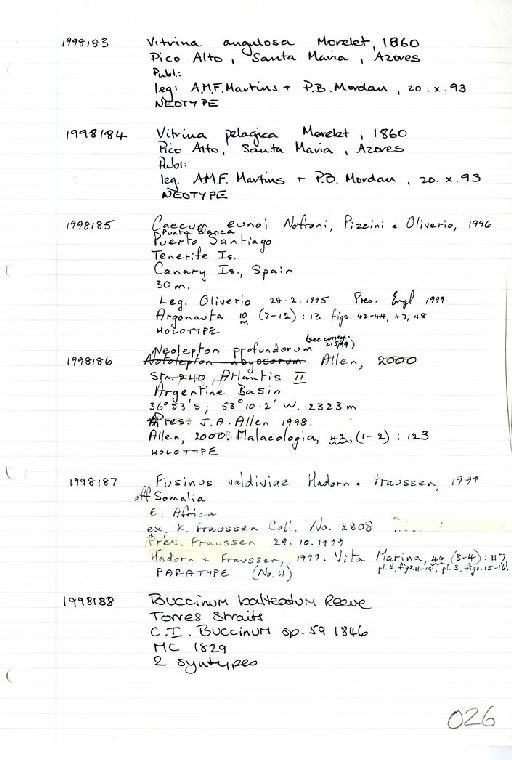 1998183 Vitrina angulosa Morelet, 1860
Pico Alto, Santa Maria, Azores
Publ:
leg: A.M.F. Martins + P.B. Mordan, 20.x.93
NEOTYPE
1998184 Vitrina pelagica Morelet, 1860
Pico Alto, Santa Maria, Azores
Publ:
leg. A.M.F. Martins + P.B. Mordan, 20.x.93
NEOTYPE
1998185 Caecum eunoi Nofroni, Pizzini & Oliverio, 1996
Punta Blanca
Puerto Santiago
Tenerife Is.
Canary Is, Spain
30m.
Leg. Oliverio 24.2.1995 Pres. 1999
Argonauta 10 (7-12): 13 figs. 42-44, 47, 48
HOLOTYPE
Neolepton profundorum
1998186 Allen, 2000
Stn 240, Atlantis II
Argentine Basin
36°53'S, 53°10.2'W. 2323m
Pres. J.A. Allen 1998.
Allen, 2000. Malacologia, 43 (1-2): 123
HOLOTYPE
1998187 Fusinus valdiviae Hadorn & Fraussen, 1999
off Somalia
E. Africa
ex. K. Fraussen Coll. No. 2808
Pres. Fraussen 29.10.1999
Hadorn & Fraussen, 1999. Vita Marina, 46 (3-4): 117
PARATYPE (No. 4)
1998188 Buccinum balteatum Reeve
Torres Straits
C.I. Buccinum sp. 59 1846
MC 1829
2 Syntypes
026